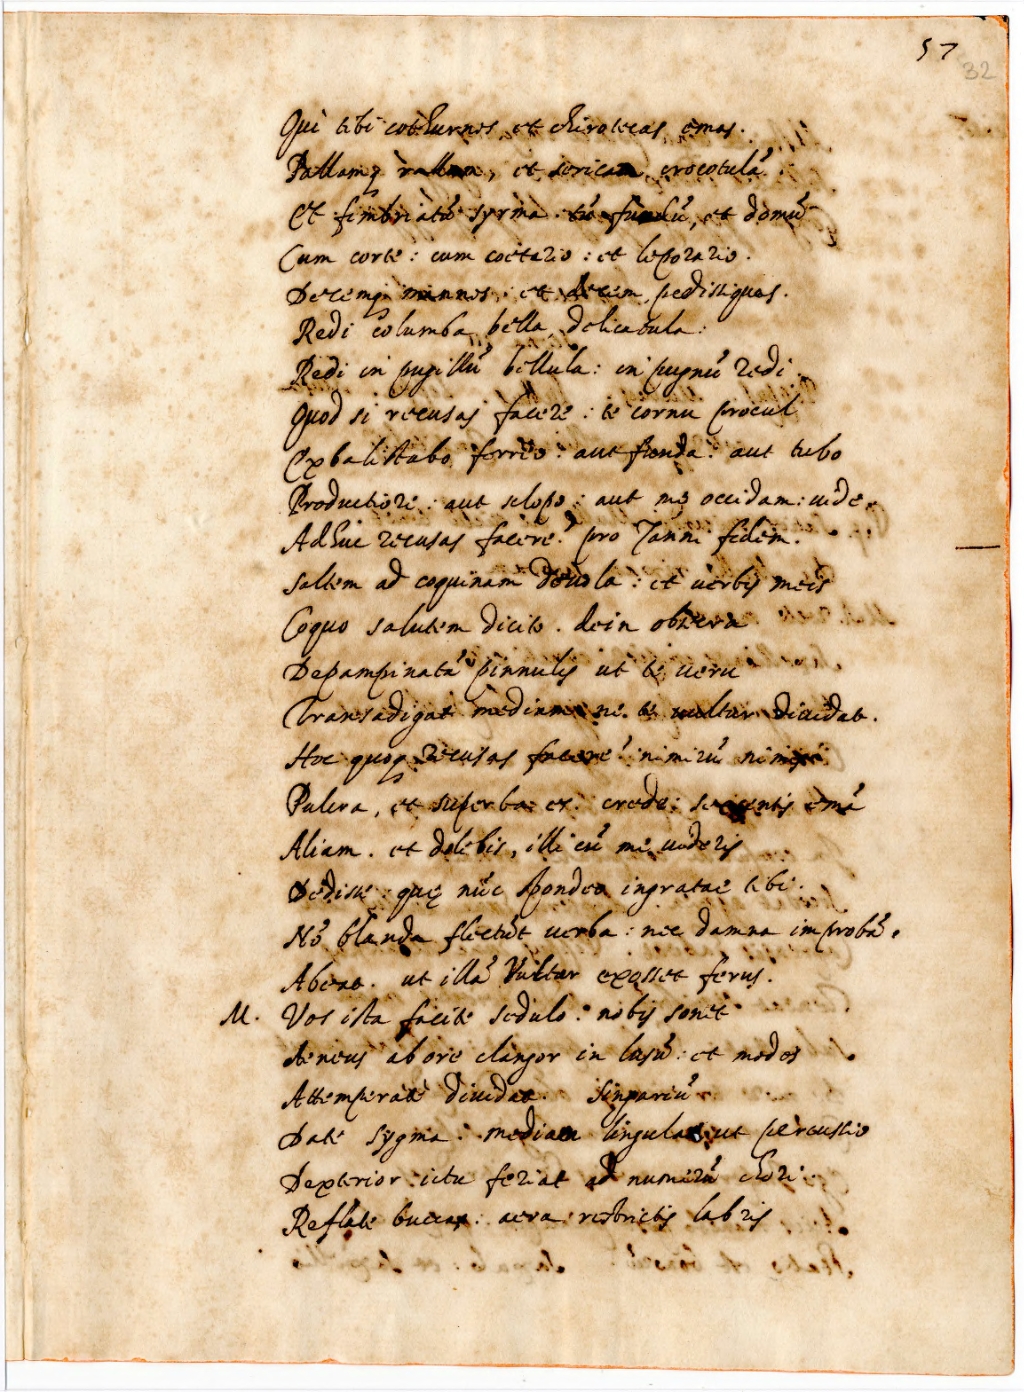 57
32
Qui tibi cothurnos, et chirotecas emas.
Pallamq rallam, et sericam crocotulã.
Et fimbriatũ syrma. tũ fundũ, et domũ
Cum corte: cum coetario: et leporario.
Decemq mannos, et decem pedissquas.
Redi columba bella, delicatula:
Redi in pugillũ bellula: in pugnũ redi.
Quod si recusas facere: te cornu procul
Exbalistabo ferreo: aut funda: aut tubo
Productiore: aut sclopo: aut me occidam: uide.
Adhuc recusas facere? pro Janni fidem.
Saltem ad coquinam deuola: et uerbis meis
Coquo salutem dicito. dein obsecra
Depampinatã pinnulis ut te ueru
Transadigat mediam: ne te uultur diuidat.
Hoc quoq recusas facere? nimirũ nimis
Pulcra, et superba es. crede: sescentis emã
Aliam. et dolebis, illi cũ me uideris
Dedisse: quę nũc spondeo ingratae tibi.
Nõ blanda flectũt uerba: nec damna improbã.
Abeat. ut illã Vultur exosset ferus.
M. Vos ista facite sedulo: nobis sonet
Aeneus ab ore clangor in lusũ: et modos
Attemperatè diuidat. Sinpariũ
Date sygma: mediam lingulam ut percussio
Dexterior ictu feriat ad numerũ chori.
Reflate buccas: aera restrictis labris